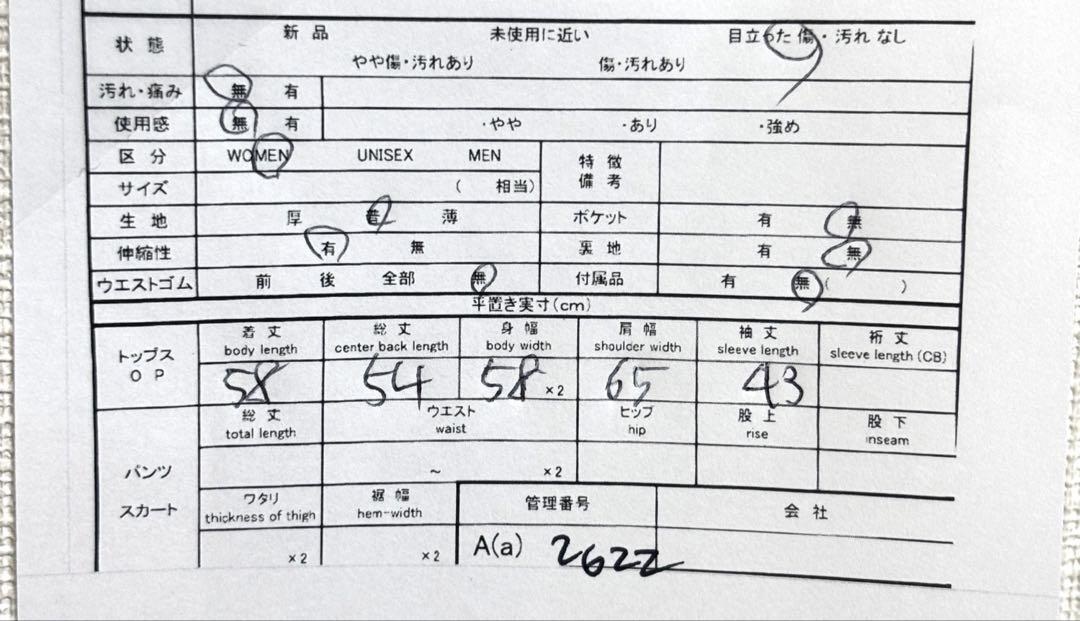 新品 未使用に近い 目立った傷・汚れなし
状態
やや傷・汚れあり 傷・汚れあり
汚れ・痛み 無 有
使用感 無 有 ・やや ・あり ・強め
区分 WOMEN UNISEX MEN 特徴
備考
サイズ ( 相当)
生地 厚 普 薄 ポケット 有 無
伸縮性 有 無 裏地 有 無
ウエストゴム 前 後 全部 無 付属品 有 無( )
平置き実寸(cm)
着丈 総丈 身幅 肩幅 袖丈 裄丈
body length center back length body width shoulder width sleeve length sleeve length(CB)
トップス
OP
58 54 58 ×2 65 43
総丈 ウエスト ヒップ 股上 股下
total length waist hip rise inseam
パンツ ~ ×2
スカート
ワタリ 裾幅 管理番号 会社
thickness of thigh hem-width
×2 ×2 A(a) 2622